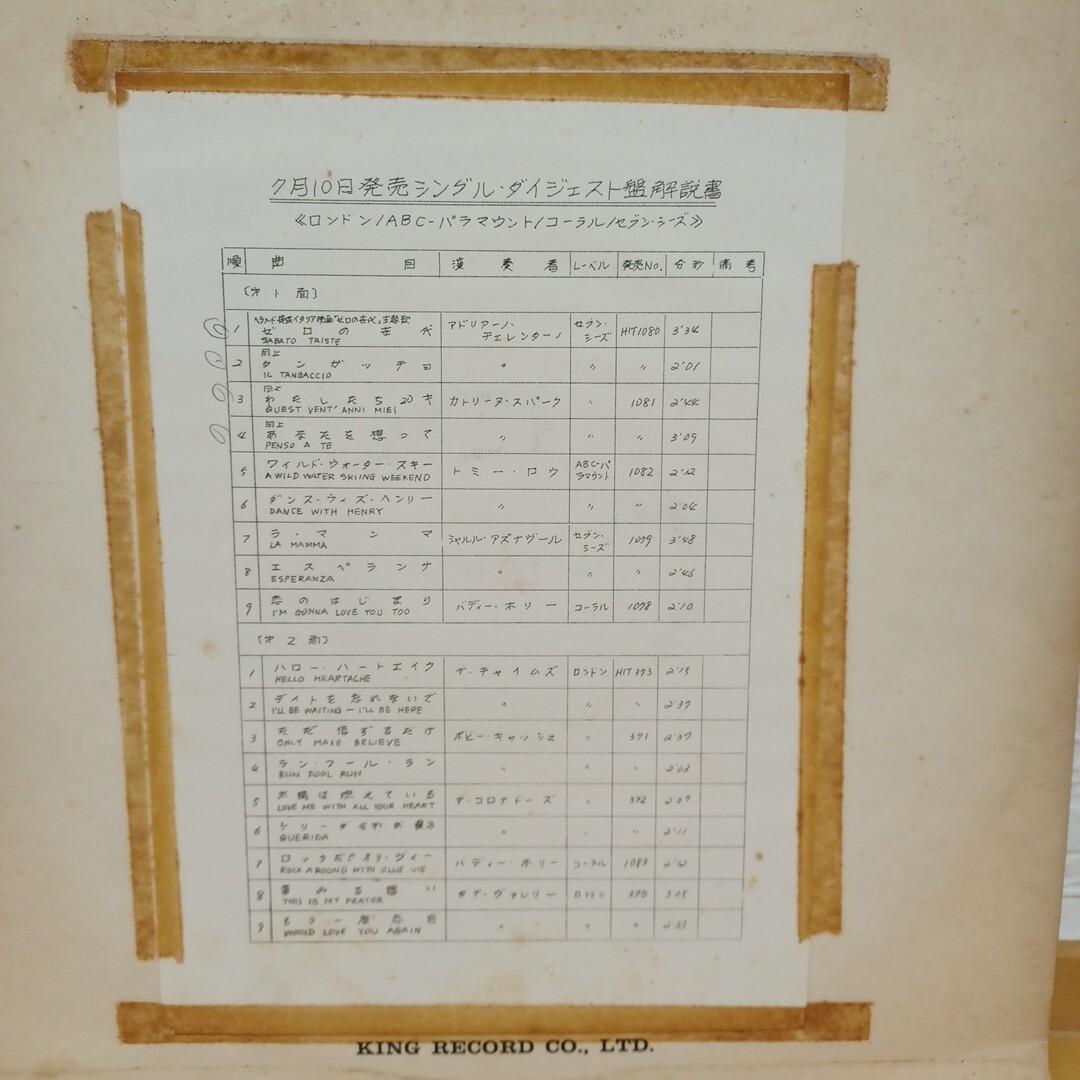 7月10日発売シングル・ダイジェスト盤解説書
≪ロンドン/ABC-パラマウント/コーラル/セブン・シーズ≫
順 曲 目 演 奏 者 レーベル 発売No. 分 秒 備 考
〔オ 1 面〕
1 ゼロの世代 SABATO TRISTE アドリアーノ・チェレンターノ セブン・シーズ HIT1080 3'34
2 同上 タンガッチョ IL TANGACCIO 〃 〃 〃 2'01
3 同上 わたしたち20才 QUEST VENT' ANNI MIEI カトリーヌ・スパーク 〃 1081 2'44
4 同上 あなたを想って PENSO A TE 〃 〃 〃 3'09
5 ワイルド・ウォーター・スキー A WILD WATER SKIING WEEKEND トミー・ロウ ABC-パラマウント 1082 2'12
6 ダンス・ウィズ・ヘンリー DANCE WITH HENRY 〃 〃 〃 2'04
7 ラ・マンマ LA MAMMA シャルル・アズナヴール セブン・シーズ 1079 3'48
8 エスペランザ ESPERANZA 〃 〃 〃 2'46
9 恋のはじまり I'M GONNA LOVE YOU TOO バディー・ホリー コーラル 1078 2'10
〔オ 2 面〕
1 ハロー・ハートエイク HELLO HEARTACHE ザ・チャイムズ ロンドン HIT373 2'15
2 デイトを忘れないで I'LL BE WAITING - I'LL BE HERE 〃 〃 〃 2'37
3 ただ信ずるだけ ONLY MAKE BELIEVE ボビー・キャッシュ 〃 371 2'37
4 ラン・フール・ラン RUN FOOL RUN 〃 〃 〃 2'03
5 太陽は燃えている LOVE ME WITH ALL YOUR HEART ザ・コロナドーズ 〃 372 2'07
6 QUERIDA 〃 〃 〃 2'11
7 ROCK AROUND WITH OLLIE VIE バディー・ホリー コーラル 1083
8 THIS IS MY PRAYER ダナ・ヴァレリー ロンドン 370 3'05
9 もう一度恋を WOULD LOVE YOU AGAIN 〃 〃 〃
KING RECORD CO., LTD.